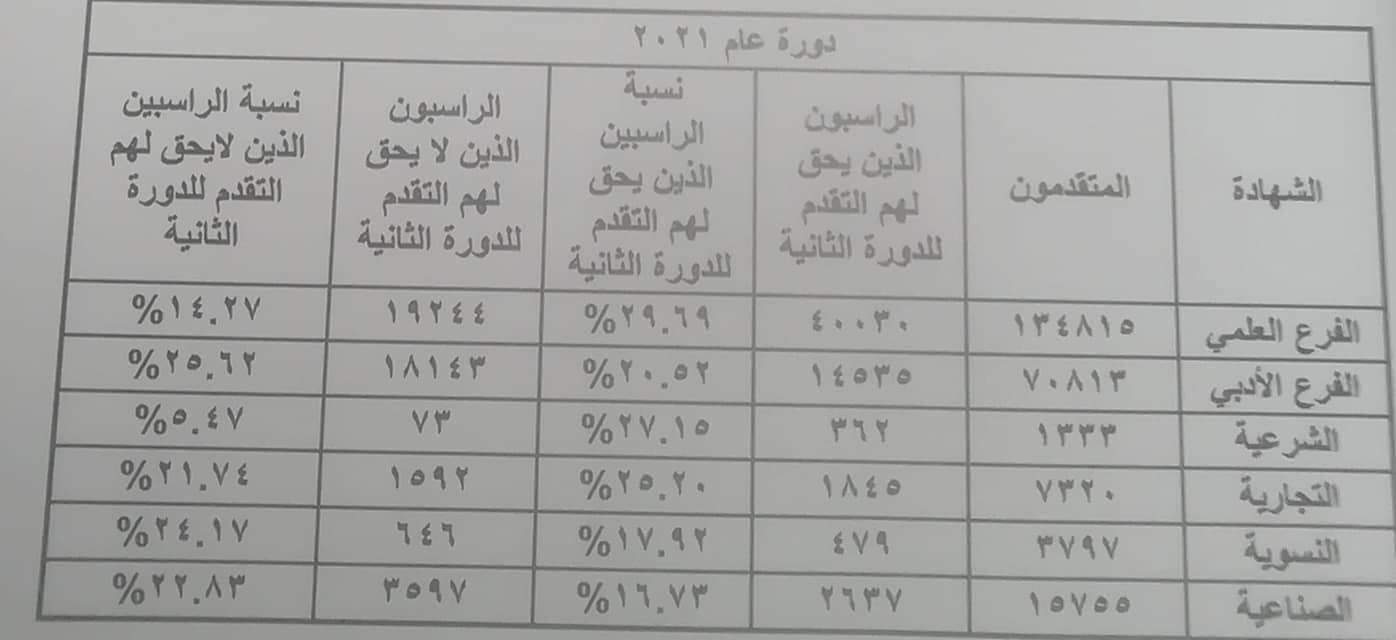 دورة عام ٢٠٢١
الشهادة
المتقدمون
الراسبون
الذين يحق
لهم التقدم
للدورة الثانية
نسبة
الراسبين
الذين يحق
لهم التقدم
للدورة الثانية
الراسبون
الذين لا يحق
لهم التقدم
للدورة الثانية
نسبة الراسبين
الذين لايحق لهم
التقدم للدورة
الثانية
الفرع العلمي ١٣٤٨١٥ ٤٠٠٣٠ ٢٩.٦٩% ١٩٢٤٤ ١٤.٢٧%
الفرع الأدبي ٧٠٨١٣ ١٤٥٣٥ ٢٠.٥٢% ١٨١٤٣ ٢٥.٦٢%
الشرعية ١٣٣٣ ٣٦٢ ٢٧.١٥% ٧٣ ٥.٤٧%
التجارية ٧٣٢٠ ١٨٤٥ ٢٥.٢٠% ١٥٩٢ ٢١.٧٤%
النسوية ٣٧٩٧ ٤٧٩ ١٧.٩٢% ٦٤٦ ٢٤.١٧%
الصناعية ١٥٧٥٥ ٢٦٣٧ ١٦.٧٣% ٣٥٩٧ ٢٢.٨٣%